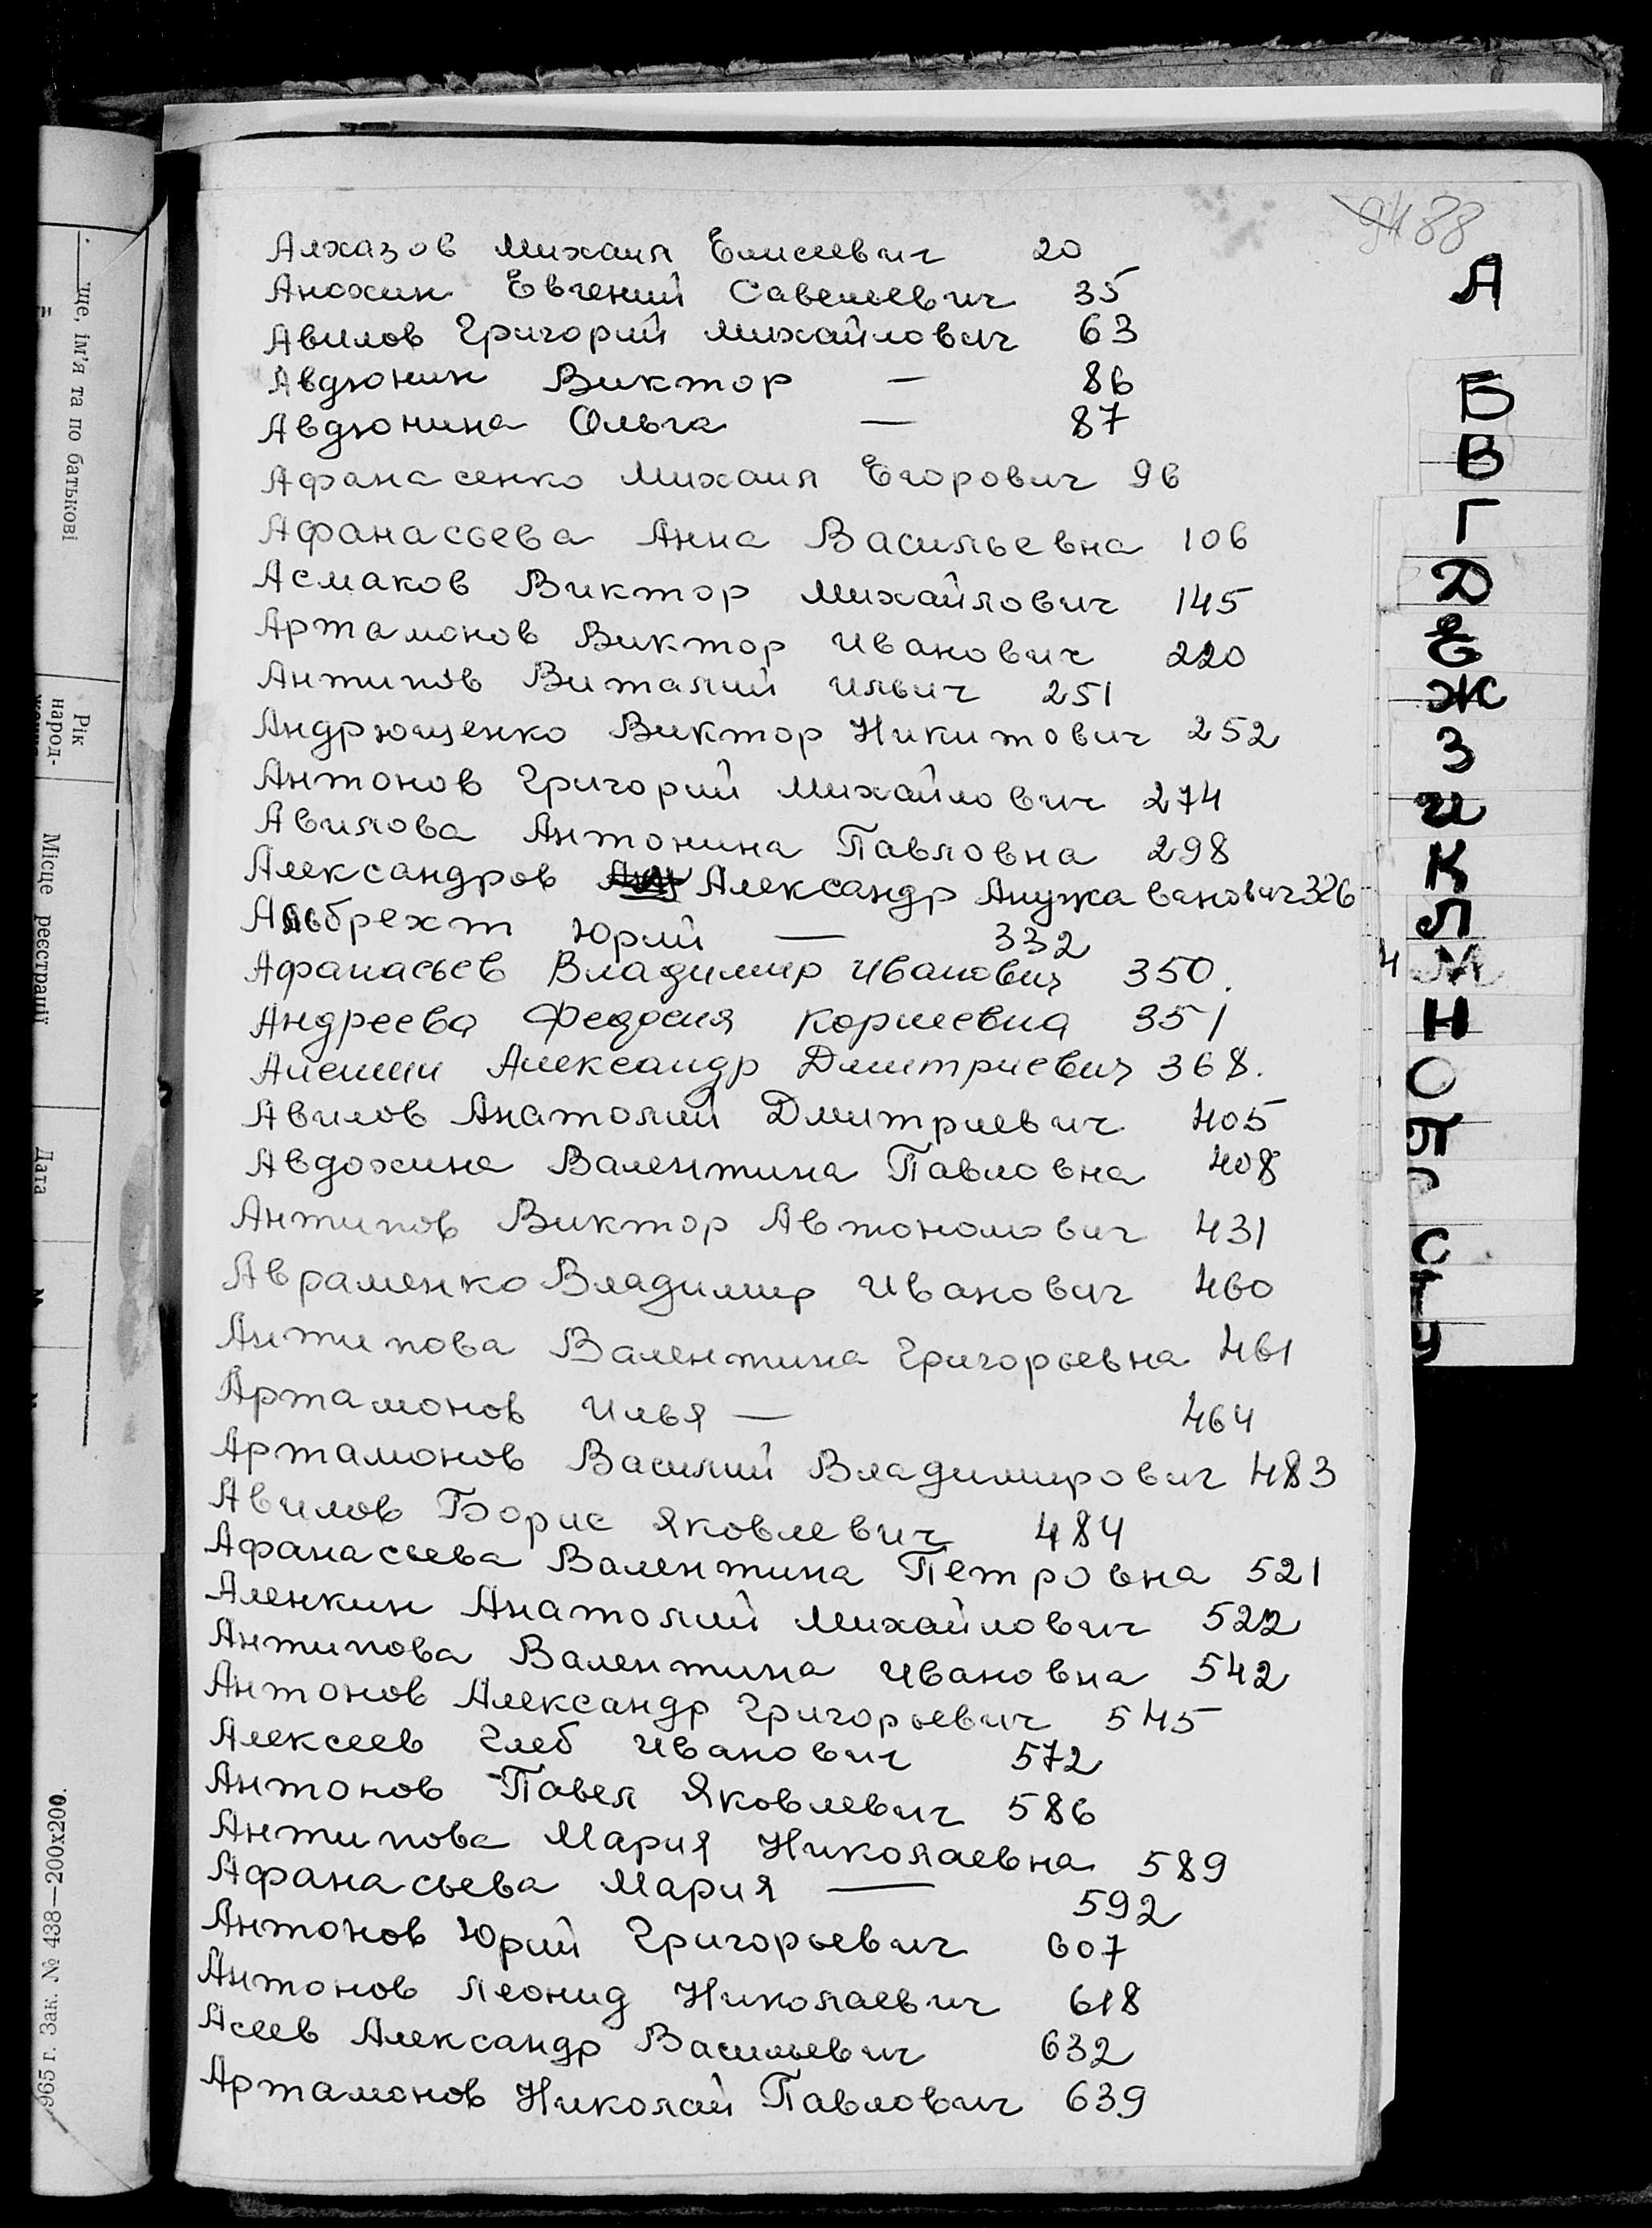 9488
Алхазов Михаил Елисеевич 20
Анохин Евгений Савельевич 35
Авилов Григорий Михайлович 63
Авдюнин Виктор — 86
Авдюнина Ольга — 87
Афанасенко Михаил Егорович 96
Афанасьева Анна Васильевна 106
Асмаков Виктор Михайлович 145
Артамонов Виктор Иванович 220
Антипов Виталий Ильич 251
Андрющенко Виктор Никитович 252
Антонов Григорий Михайлович 274
Авилова Антонина Павловна 298
Александров Александр 326
Альбрехт Юрий — 332
Афанасьев Владимир Иванович 350.
Андреева Федосия Корнеевна 351
Алешин Александр Дмитриевич 368.
Авилов Анатолий Дмитриевич 405
Авдохина Валентина Павловна 408
Антипов Виктор Автономович 431
Авраменко Владимир Иванович 460
Антипова Валентина Григорьевна 461
Артамонов Илья — 464
Артамонов Василий Владимирович 483
Авилов Борис Яковлевич 484
Афанасьева Валентина Петровна 521
Аленкин Анатолий Михайлович 522
Антипова Валентина Ивановна 542
Антонов Александр Григорьевич 545
Алексеев Глеб Иванович 572
Антонов Павел Яковлевич 586
Антипова Мария Николаевна 589
Афанасьева Мария — 592
Антонов Юрий Григорьевич 607
Антонов Леонид Николаевич 618
Асеев Александр Васильевич 632
Артамонов Николай Павлович 639
А
Б
В
Г
Д
Е
Ж
З
И
К
Л
М
Н
О
П
Р
С
Т
У
ще, ім'я та по батькові
Рік
народ-
Місце реєстрації
Дата
965 г. Зак. № 438—200х200.